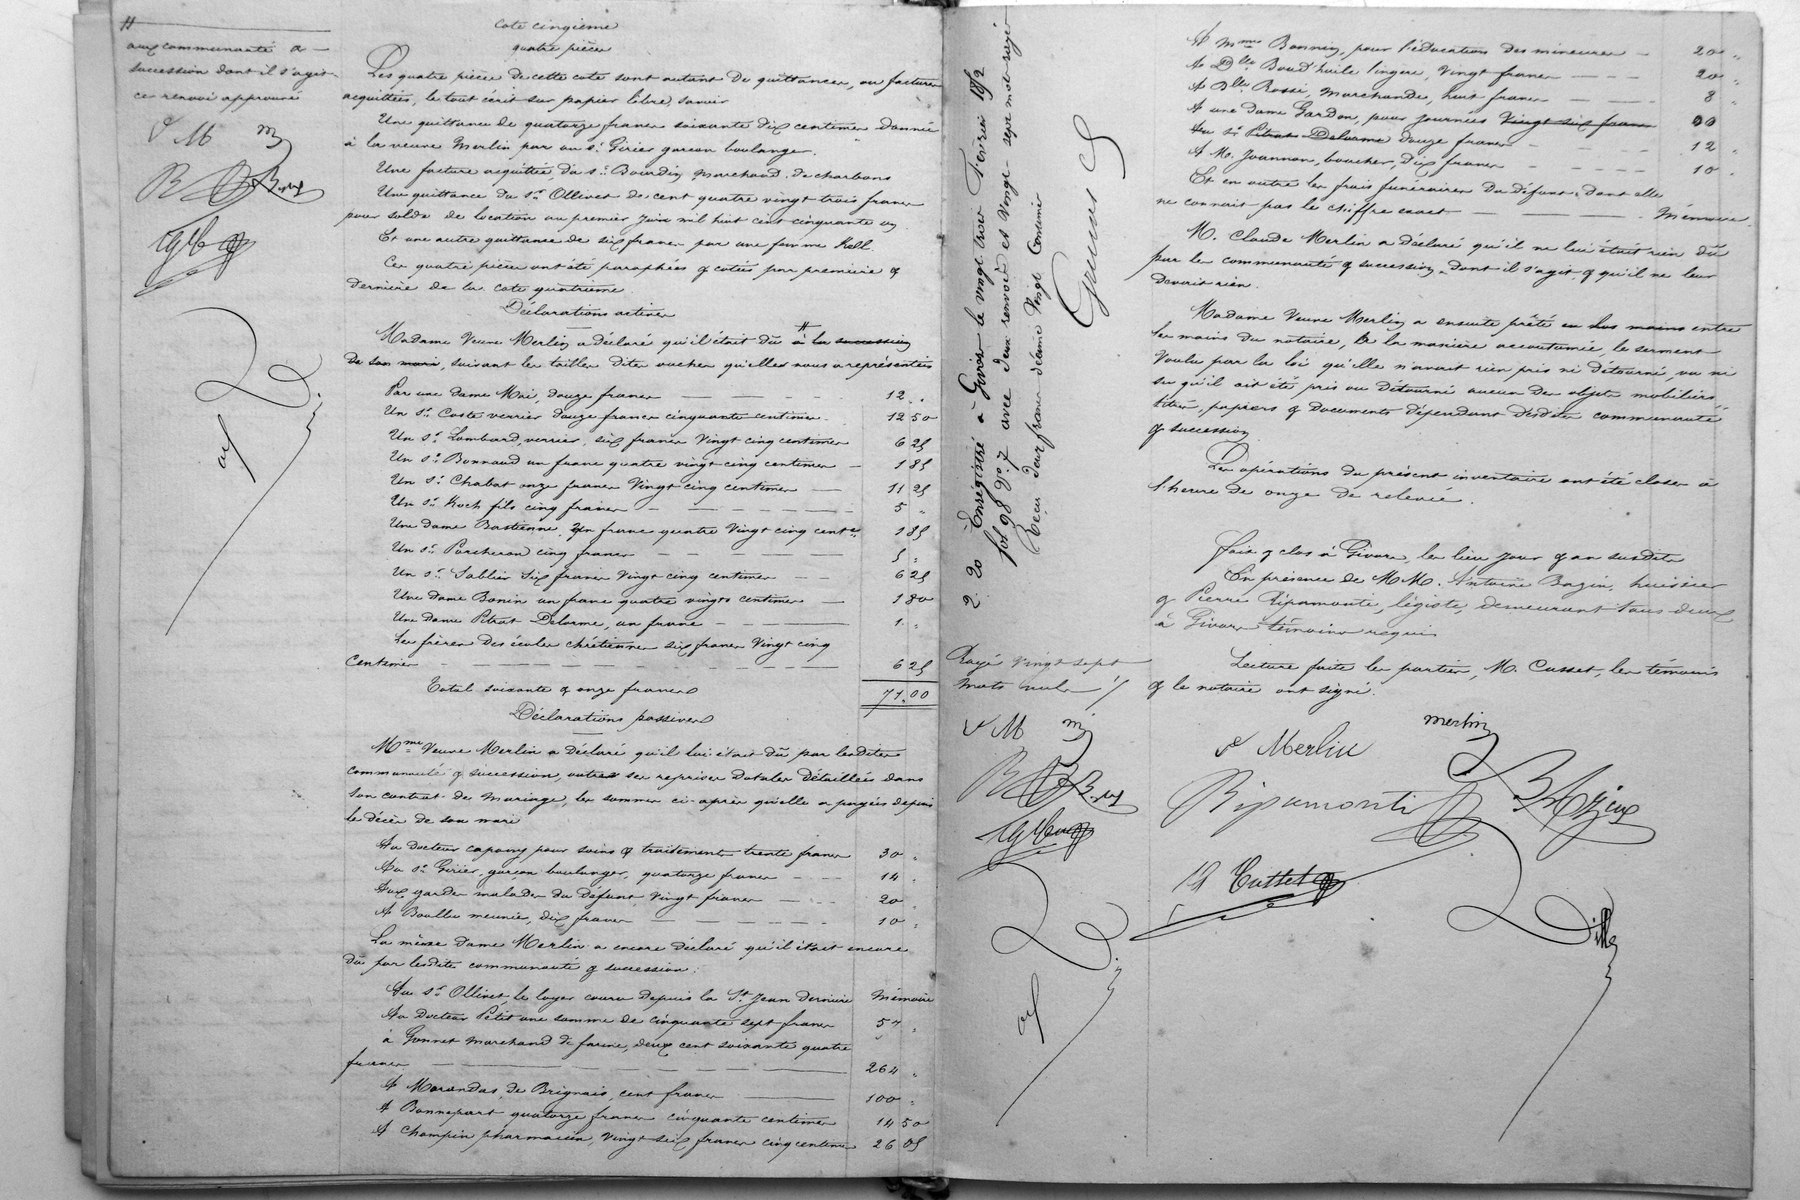 #
aux communauté &
succession dont il s'agit
ce renvoi approuvé
V M m
B
Cote cinquième
quatre pièces
Les quatre pièces de cette cote sont autant de quittances, ou factures
acquittées, le tout écrit sur papier libre, savoir
Une quittance de quatorze francs soixante dix centimes donnée
à la veuve Merlin par un sr. Girier garçon boulanger.
Une facture acquittée du sr. Bourdin marchand de charbons
Une quittance du sr. Ollivet de cent quatre vingt trois francs
pour solde de location au premier juin mil huit cent cinquante un
Et une autre quittance de six francs par une femme Koll.
Ces quatre pièces ont été paraphées & cotées par première &
dernière de la cote quatrième
Déclarations actives
Madame Veuve Merlin a déclaré qu'il était dû # à la succession
de son mari, suivant les tailles dites coches qu'elle nous a représentées
Par une dame Mai, douze francs 12 "
Un sr. Coste verrier douze francs cinquante centimes 12 50
Un sr. Lombard, verrier, six francs vingt cinq centimes 6 25
Un sr. Bonnaud un franc quatre vingt cinq centimes 1 85
Un sr. Chabat onze francs vingt cinq centimes 11 25
Un sr. Koch fils cinq francs 5 "
Une dame Bastienne, un franc quatre vingt cinq centes 1 85
Un sr. Porcheron cinq francs 5 "
Un sr. Sablier six francs vingt cinq centimes 6 25
Une dame Bonin un franc quatre vingts centimes 1 80
Une dame Pitrat Delorme, un franc 1 "
Les frères des écoles chrétiennes six francs vingt cinq
centimes 6 25
Total soixante & onze francs 71.00
Déclarations passives
Mme Veuve Merlin a déclaré qu'il lui était dû par lesdites
communauté & succession, outre ses reprises dotales détaillées dans
son contrat de mariage, les sommes ci-après qu'elle a payées depuis
le décès de son mari
Au docteur capony pour soins & traitements trente francs 30 "
Au sr. Girier, garçon boulanger, quatorze francs 14 "
Aux gardes malades du défunt, vingt francs 20 "
A Boullu meunier, dix francs 10 "
La même dame Merlin a encore déclaré qu'il était encore
dû par lesdites communauté & succession :
Au sr. Ollivet, le loyer couru depuis la St. Jean dernière Mémoire
Au docteur Petit une somme de cinquante sept francs 57 "
à Gonnet marchand de farine, deux cent soixante quatre
francs 264 "
A Marandas, de Brignais, cent francs 100 "
A Bonnepart quatorze francs cinquante centimes 14 50
A Champin pharmacien, vingt six francs cinq centimes 26 05
2 20 Enregistré à Givors le vingt trois Février 1852
fol 98 Vo. 7 avec deux renvois et vingt sept mots rayés
Reçu deux francs décime vingt centimes
Rayé vingt sept
mots nuls
V M m
B
A Mme Bonnin, pour l'éducation des mineures 20 "
A Dlle Boud'huile lingère, vingt francs 20 "
A Dlle Rossi, marchande, huit francs 8 "
A une dame Gardon, pour journées vingt six francs 00
Au sr. Pitrat Delorme douze francs 12 "
A Mr. Joannon, boucher, dix francs 10 "
Et en outre les frais funéraires du défunt dont elle
ne connait pas le chiffre exact Mémoire
M. Claude Merlin a déclaré qu'il ne lui était rien dû
par les communauté & succession dont il s'agit & qu'il ne leur
devait rien.
Madame Veuve Merlin a ensuite prêté en les mains entre
les mains du notaire, & la manière accoutumée, le serment
voulu par la loi qu'elle n'avait rien pris ni détourné vu ni
su qu'il ait été pris ou détourné aucun des objets mobiliers
titres, papiers & documents dépendant desdites communauté
& succession
Les opérations du présent inventaire ont été closes à
l'heure de onze de relevée.
Fait & clos à Givors, les lieu jour & an susdits
En présence de MM. Antoine Bazin, huissier
& Pierre Ripamonti, légiste, demeurant tous deux
à Givors témoins requis
Lecture faite les parties, M. Cusset, les témoins
& le notaire ont signé.
merlin
ve Merlin
Ripamonti
BAzin
Cusset